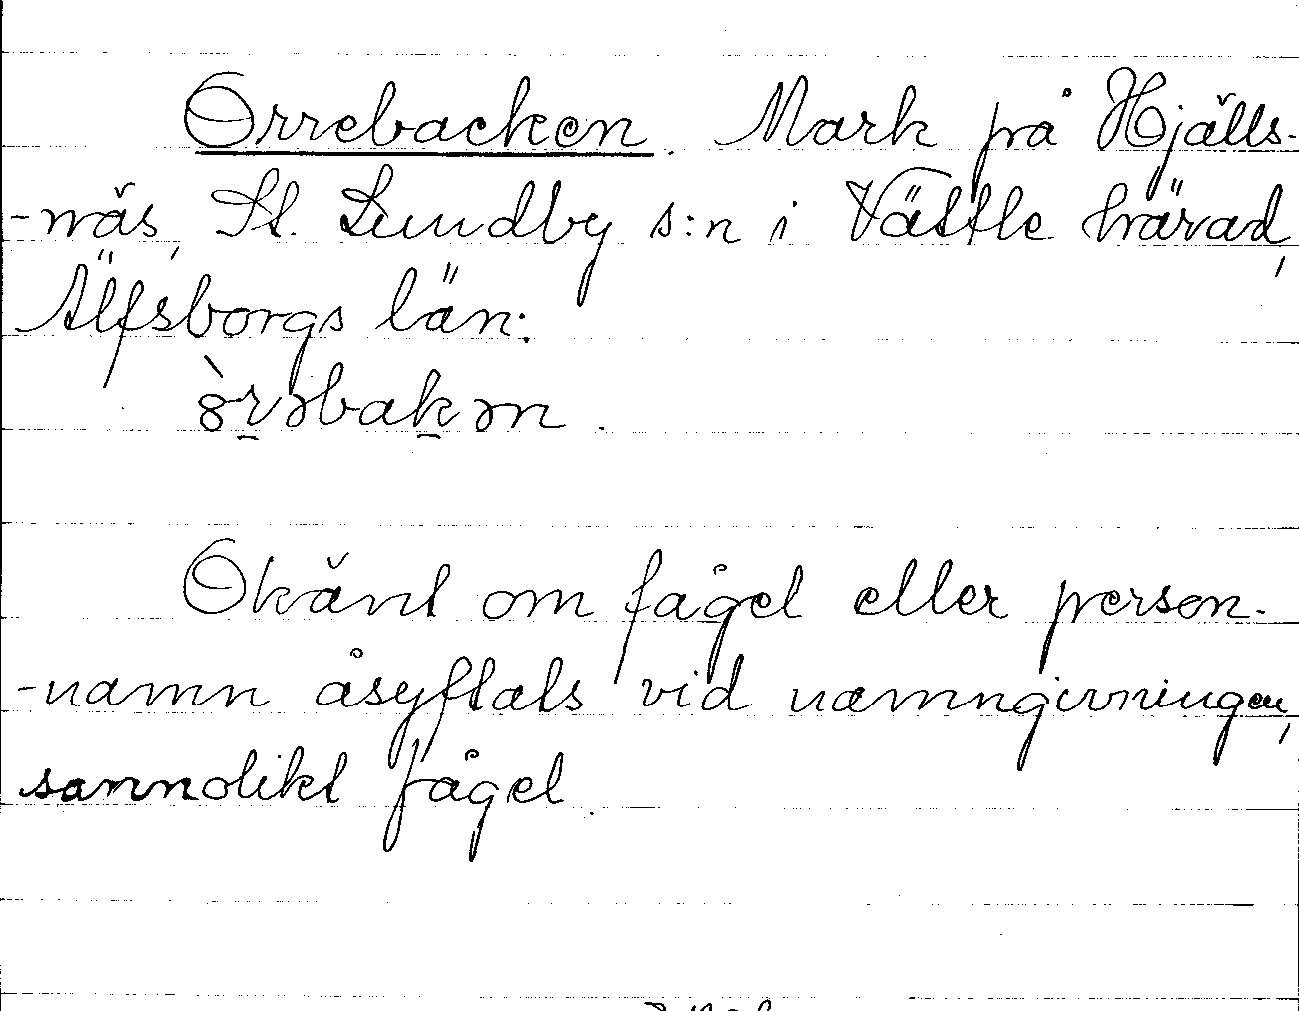 Orrebacken. Mark på Hjälls-
-näs, St. Lundby s:n i Vättle härad,
Älfsborgs län:
òrəbakən.
Okänt om fågel eller person-
-namn åsyftats vid namngivningen,
sannolikt fågel.